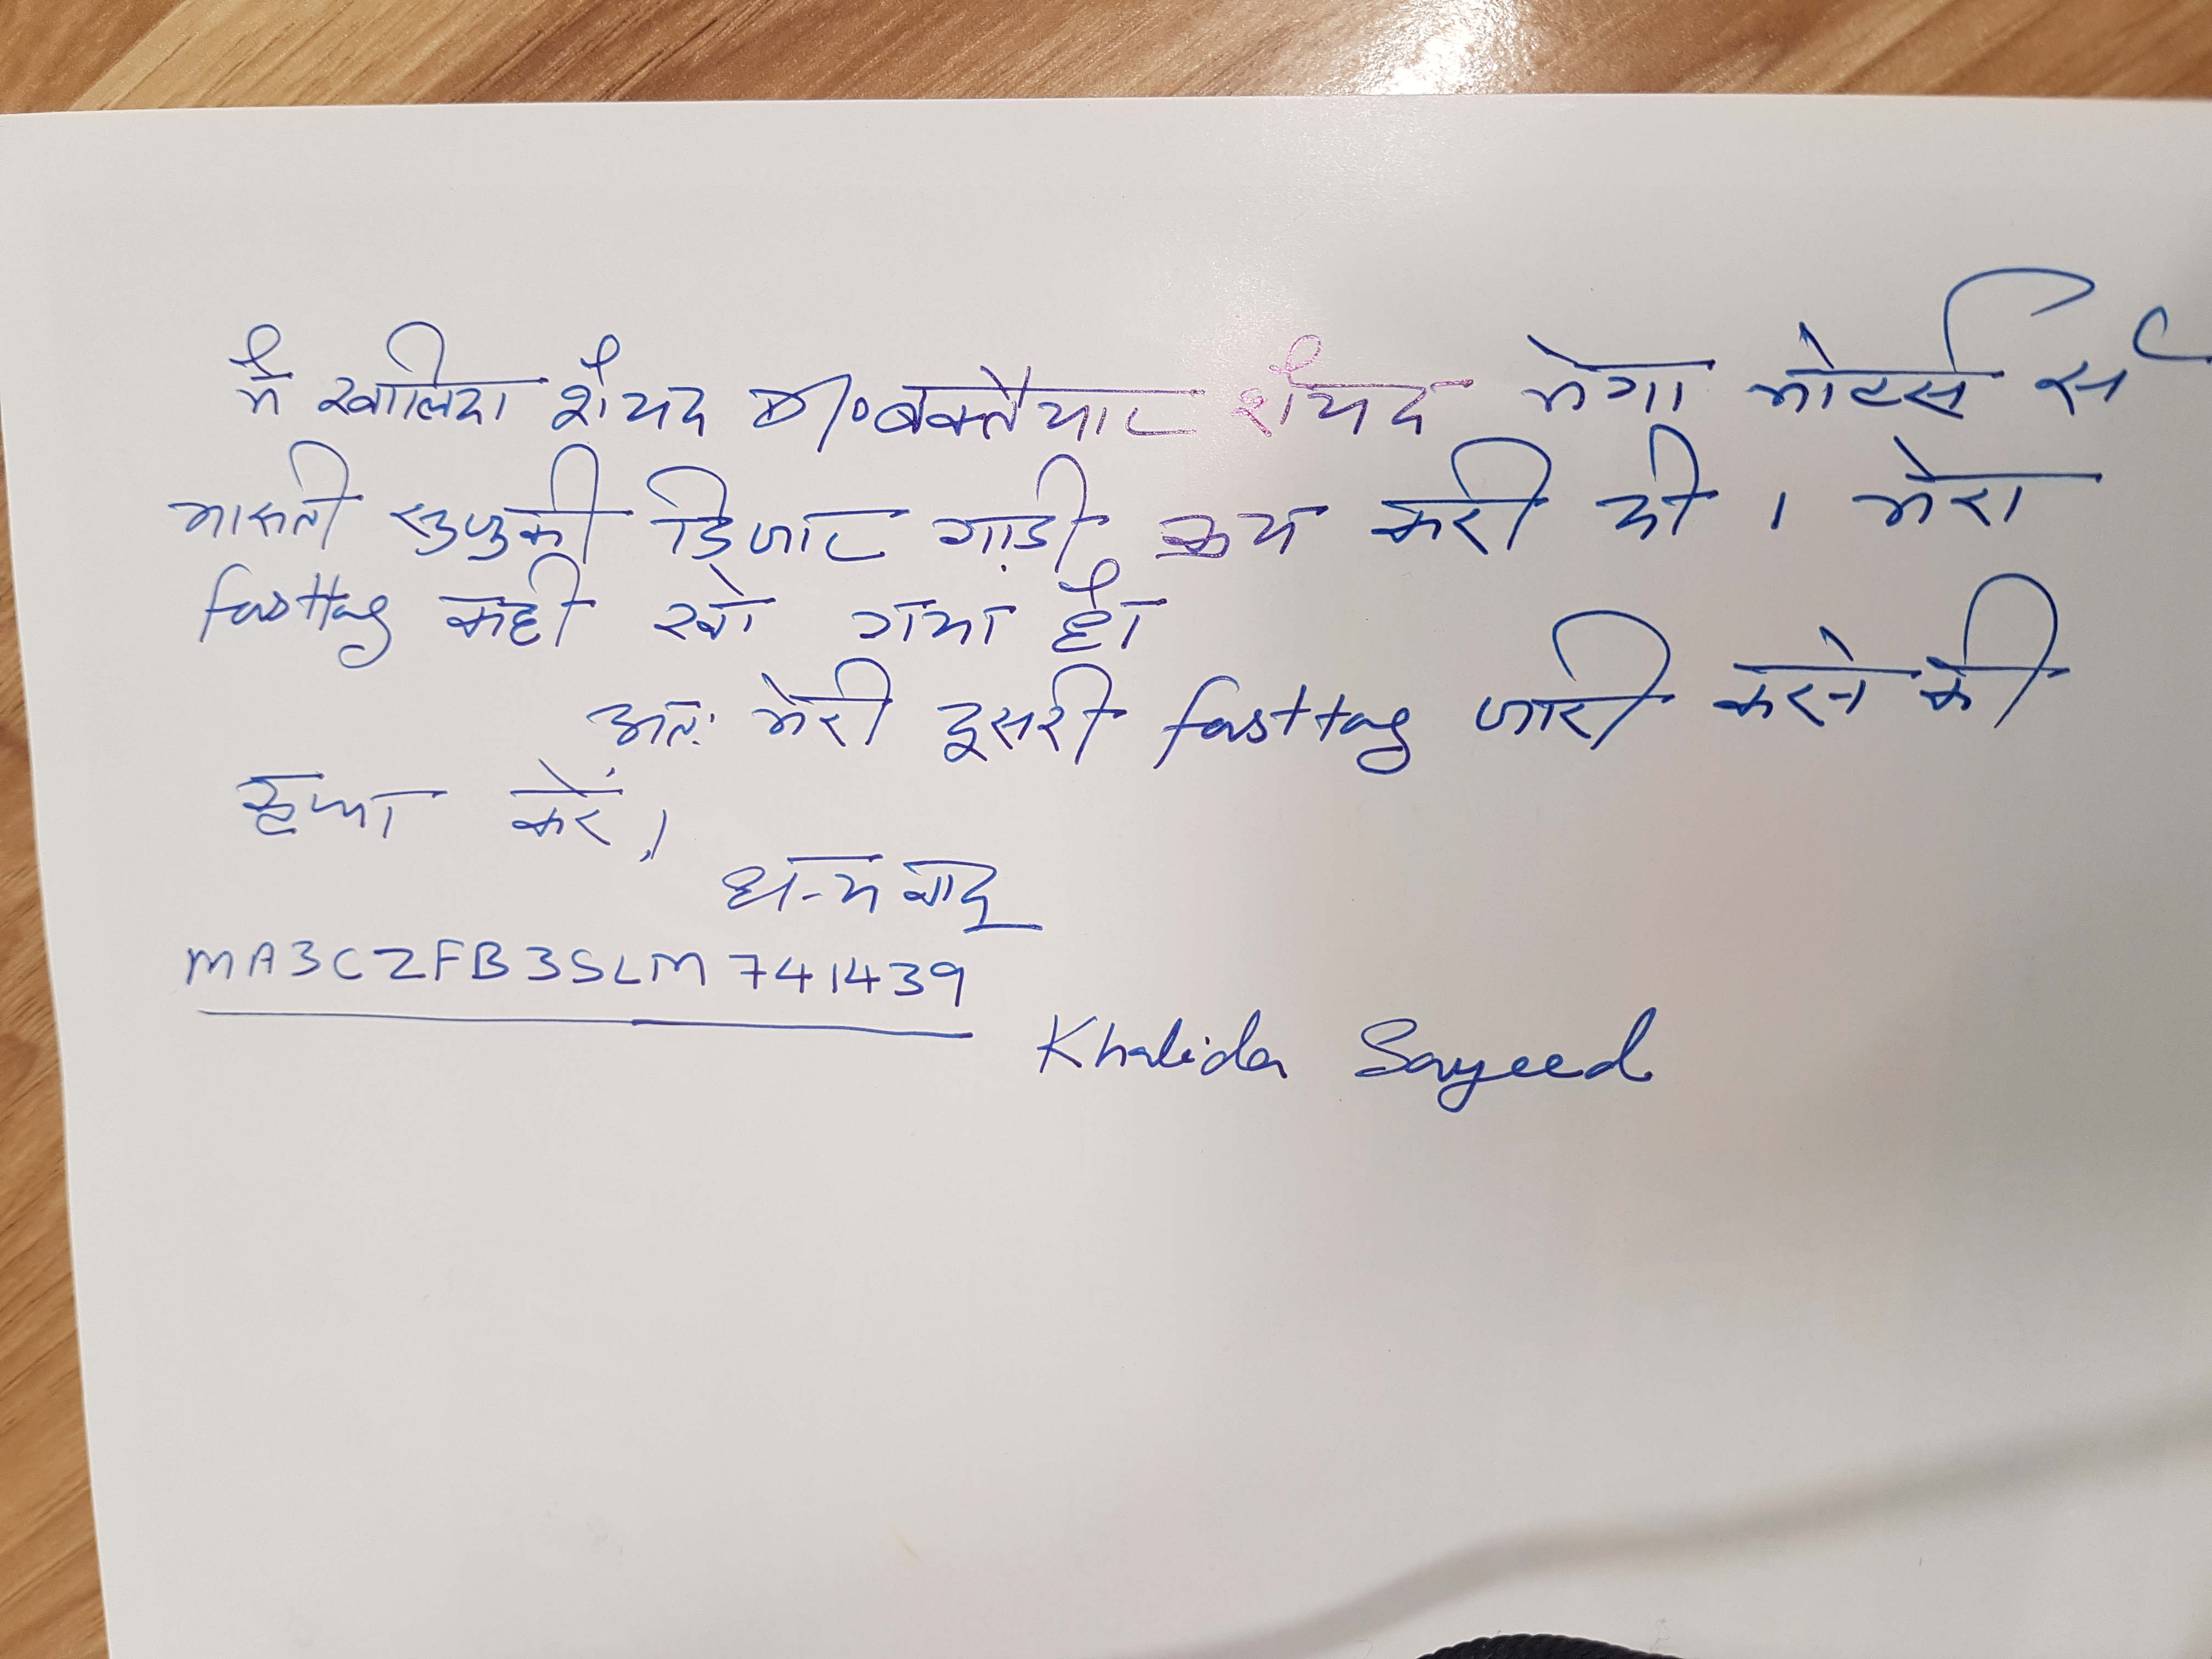 मै खालिदा शैयद D/o बक्तैयार शैयद मेगा मोटर्स से
मारुती सुजुकी डिजार गाड़ी क्रय करी थी । मेरा
fasttag कही खो गया है।
अतः मेरी दूसरी fasttag जारी करने की
कृपा करें।
धन्यवाद
MA3CZFB3SLM741439
Khalida Sayeed